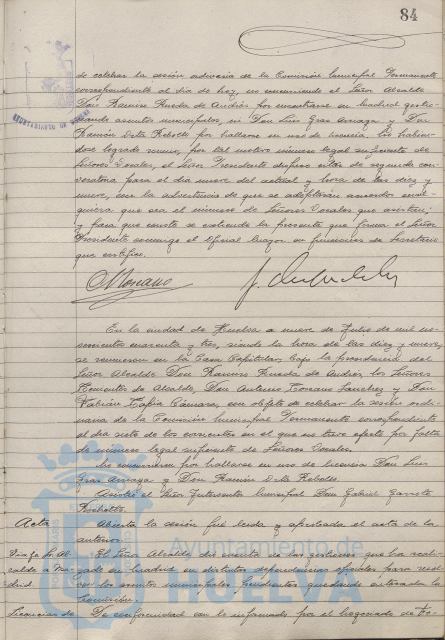 84
de celebrar la sesión ordinaria de la Comisión Municipal Permanente
correspondiente al día de hoy, no concurriendo el Señor Alcalde
Don Ramiro Rueda de Andrés por encontrarse en Madrid gestio-
nando asuntos municipales, ni Don Luis Gras Arraga y Don
Ramón Deta Rebollo por hallarse en uso de licencia. No habién-
dose logrado reunir, por tal motivo número legal suficiente de
Señores Vocales, el Señor Presidente dispuso citar de segunda con-
vocatoria para el día nueve del actual y hora de las diez y
nueve, con la advertencia de que se adoptarán acuerdos cual-
quiera que sea el número de Señores Vocales que asistan;
y para que conste se extiende la presente que firma el Señor
Presidente conmigo el Oficial Mayor en funciones de Secretario
que certifico.
En la ciudad de Huelva a nueve de Julio de mil no-
vecientos cuarenta y tres, siendo la hora de las diez y nueve,
se reunieron en la Casa Capitular, bajo la presidencia del
Señor Alcalde Don Ramiro Rueda de Andrés, los Señores
Tenientes de Alcalde, Don Antonio Sánchez y Don
Fabián Tapia Cámara, con objeto de celebrar la sesión ordi-
naria de la Comisión Municipal Permanente correspondiente
al día siete de los corrientes en el que no tuvo efecto por falta
de número legal suficiente de Señores Vocales.
No concurrieron por hallarse en uso de licencia Don Luis
Gras Arraga y Don Ramón Deta Rebollo.
Asistió el Señor Interventor Municipal Don Gabriel Garrote
Acta Abierta la sesión fue leída y aprobada el acta de la
anterior.
El Señor Alcalde, dio cuenta de las gestiones que ha reali-
zado en Madrid en distintas dependencias oficiales para
los asuntos municipales pendientes quedando enterada la
Comisión.
Licencias de De conformidad con lo informado por el Negociado de
Ayuntamiento de
HUELVA